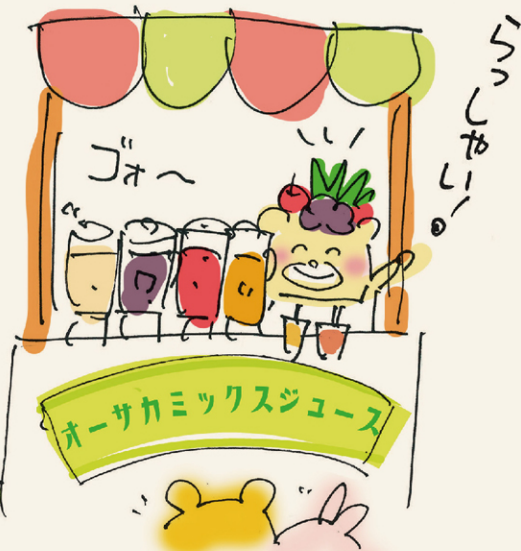 らっしゃい!
ゴォ〜
オーサカミックスジュース